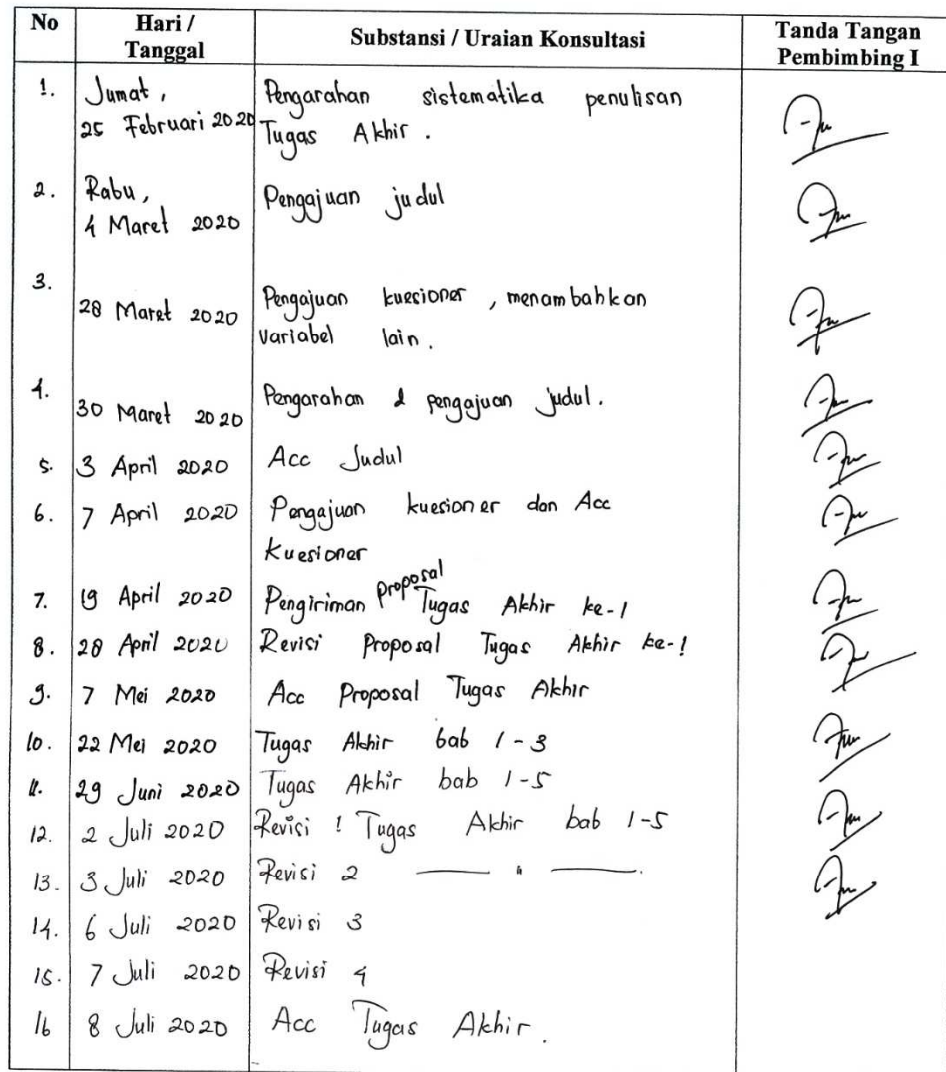 No Hari / Tanggal Substansi / Uraian Konsultasi Tanda Tangan Pembimbing I
1. Jumat, Pengarahan sistematika penulisan
25 Februari 2020 Tugas Akhir.
2. Rabu, Pengajuan judul
4 Maret 2020
3.
28 Maret 2020 Pengajuan kuesioner, menambahkan
variabel lain.
4.
30 Maret 2020 Pengarahan & pengajuan judul.
5. 3 April 2020 Acc Judul
6. 7 April 2020 Pengajuan kuesioner dan Acc
Kuesioner
7. 19 April 2020 Pengiriman proposal Tugas Akhir ke-1
8. 28 April 2020 Revisi Proposal Tugas Akhir ke-1
9. 7 Mei 2020 Acc Proposal Tugas Akhir
10. 22 Mei 2020 Tugas Akhir bab 1-3
11. 29 Juni 2020 Tugas Akhir bab 1-5
12. 2 Juli 2020 Revisi 1 Tugas Akhir bab 1-5
13. 3 Juli 2020 Revisi 2 — " —.
14. 6 Juli 2020 Revisi 3
15. 7 Juli 2020 Revisi 4
16 8 Juli 2020 Acc Tugas Akhir.